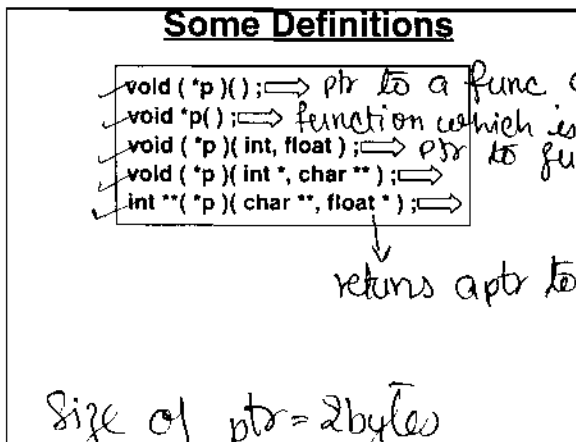 Some Definitions
void ( *p )( ) ; ptr to a func
void *p() ; function which is
void ( *p )( int, float ) ; ptr to fu
void ( *p )( int *, char ** ) ;
int **( *p )( char **, float * ) ;
retuns a ptr to
Size of ptr = 2bytes